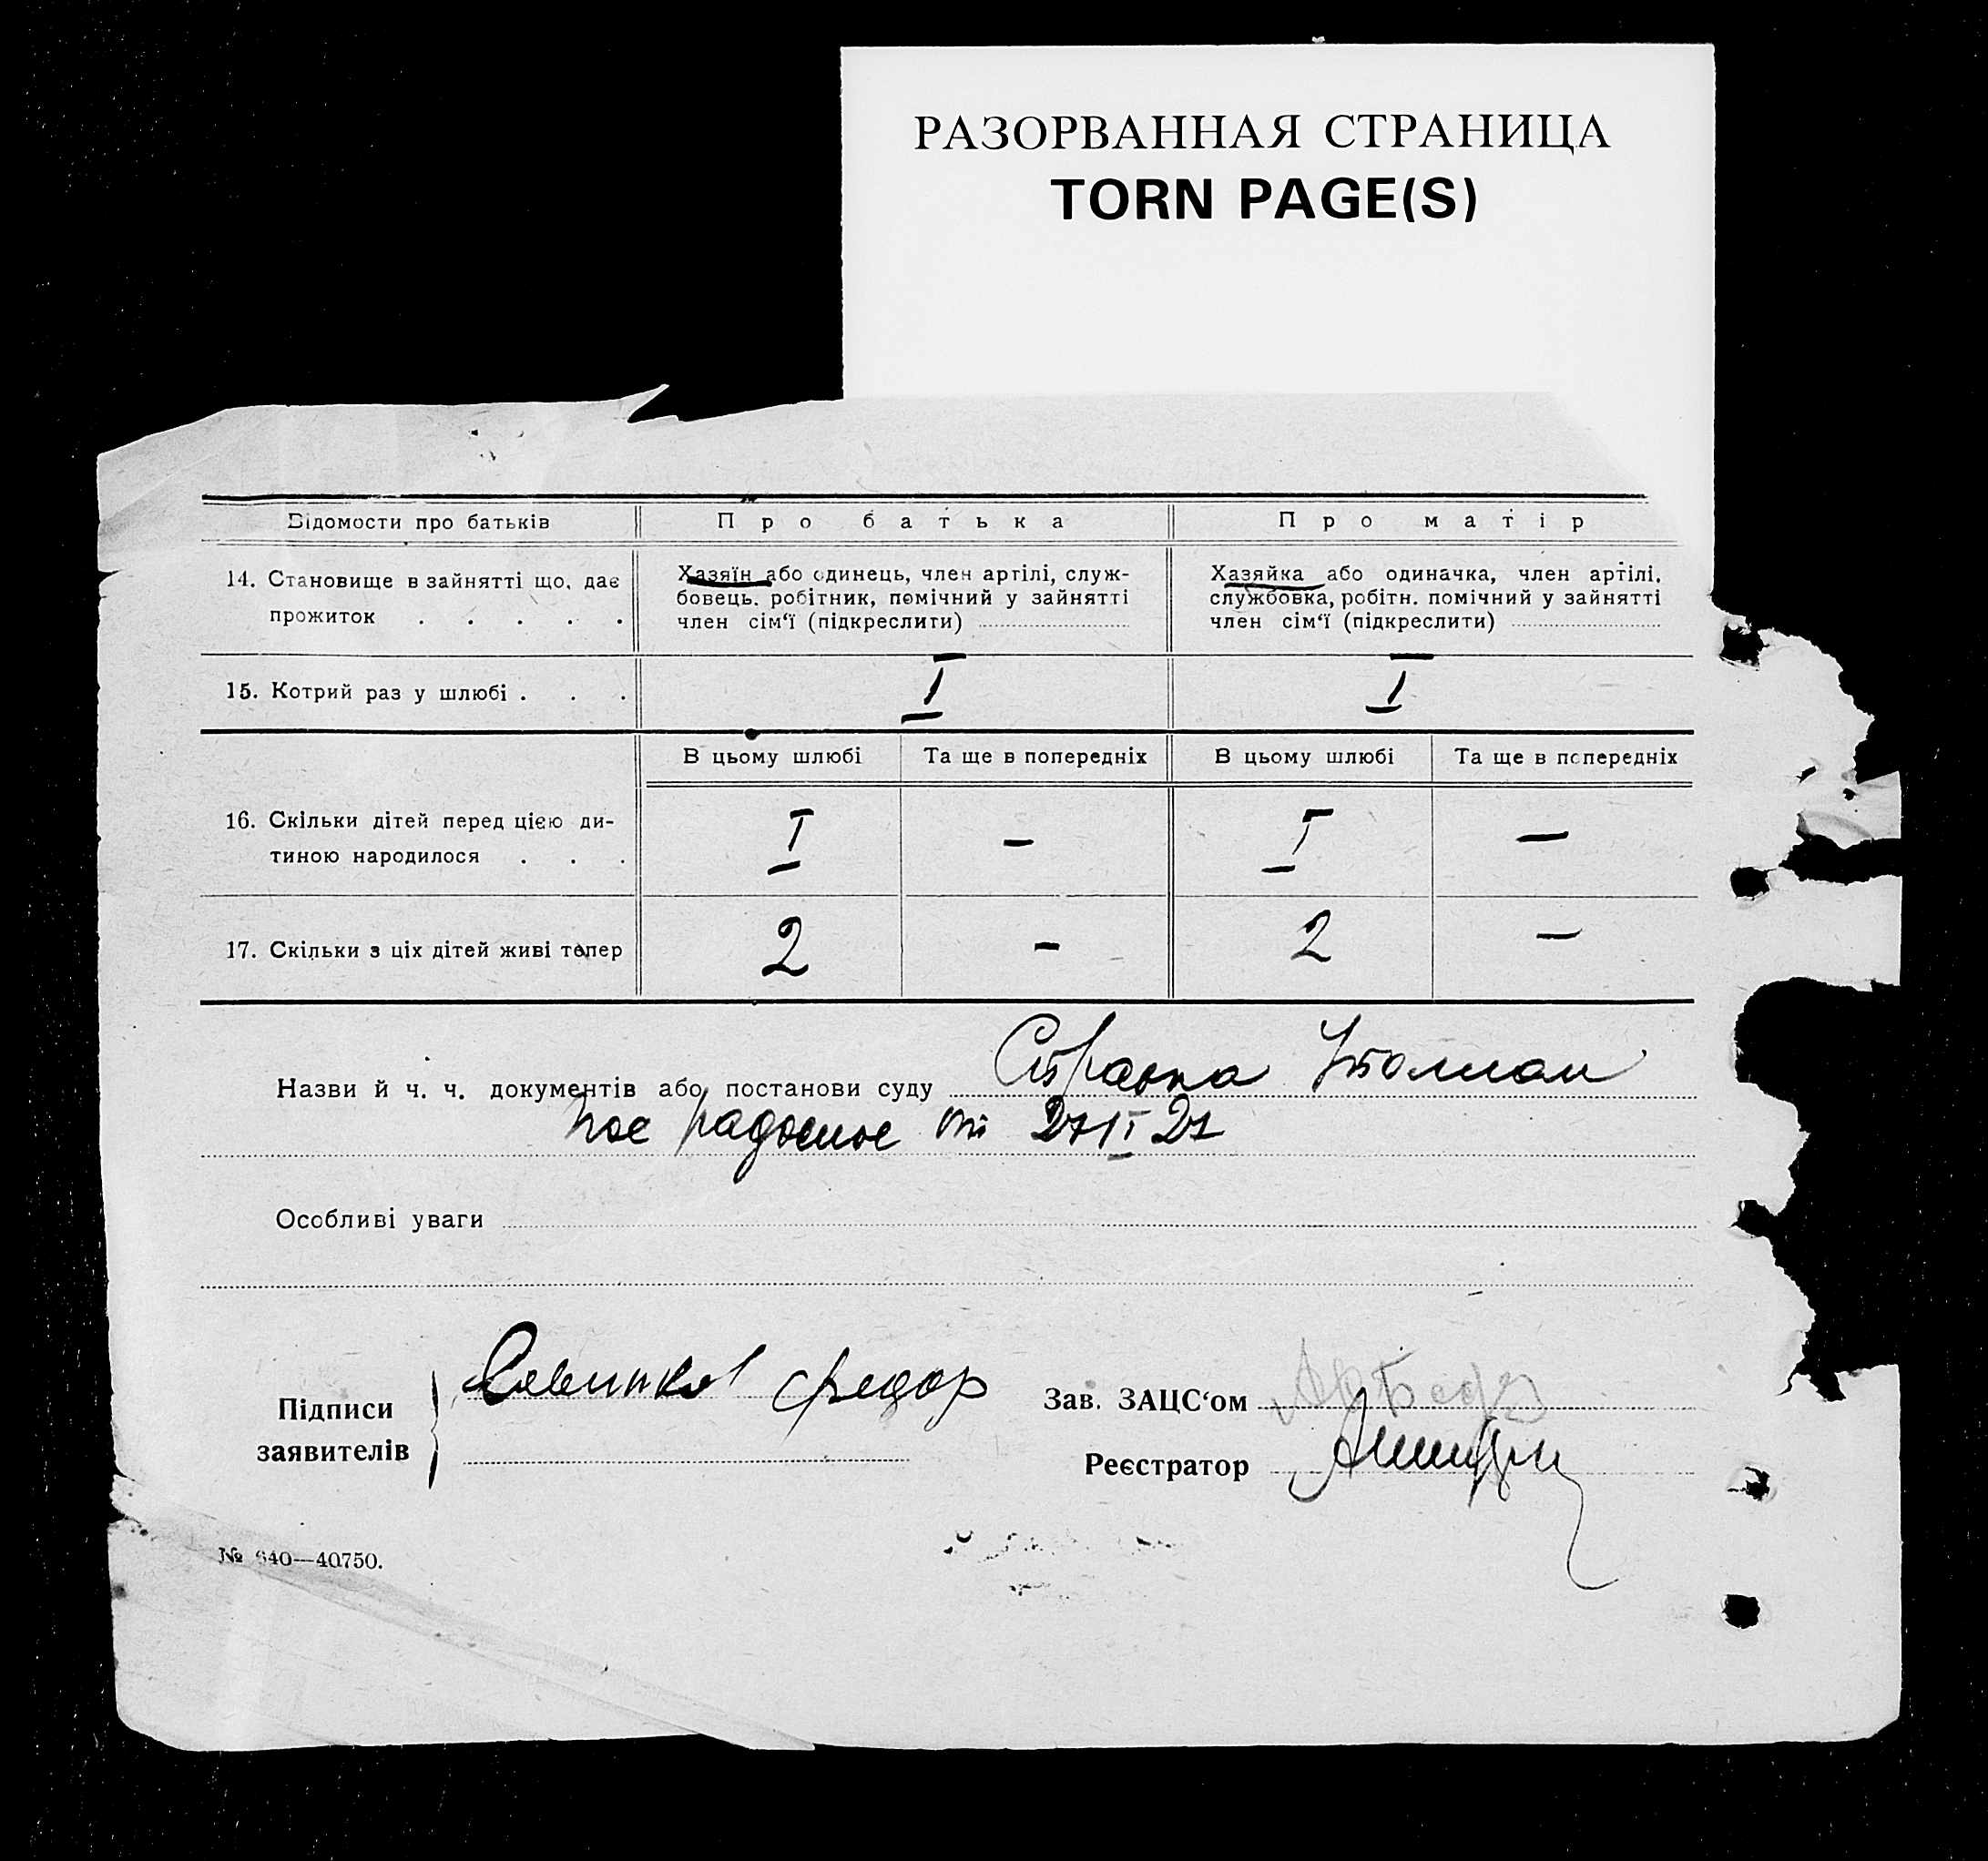 РАЗОРВАННАЯ СТРАНИЦА
TORN PAGE(S)
Відомости про батьків Про батька Про матір
14. Становище в зайнятті що, дає прожиток . . . . .
Хазяїн або одинець, член артілі, служ-
бовець. робітник, помічний у зайнятті
член сім‘ї (підкреслити)
Хазяйка або одиначка, член артілі,
службовка, робітн. помічний у зайнятті
член сім‘ї (підкреслити)
15. Котрий раз у шлюбі . . . I I
В цьому шлюбі Та ще в попередніх В цьому шлюбі Та ще в попередніх
16. Скільки дітей перед цією ди-
тиною народилося . . . I – I –
17. Скільки з ціх дітей живі тепер 2 – 2 –
Назви й ч. ч. документів або постанови суду Справка
от 27
Особливі уваги
Підписи
заявителів
Федор
Зав. ЗАЦС‘ом
Реєстратор
№ 640—40750.